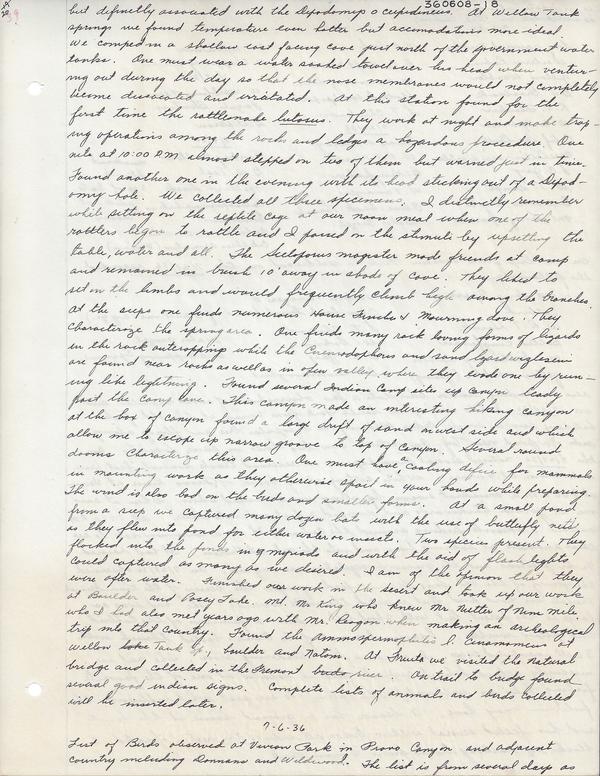 360808-18
but definetly associated with the Dipodomys o cupidineus. At Willow Tank
springs we found temperature even hotter but accomodations more ideal.
We camped in a shallow east facing cave just north of the government water
tanks. One must wear a water soaked towel over his head when ventur-
ing out during the day so that the nose membranes would not completely
become desicated and irritated. At this station found for the
first time the rattlesnake lutosus. They work at night and make trap-
ing operations among the rocks and ledges a hazardous procedure. One
nite at 10:00 P.M. almost stepped on two of them but warned just in time.
Found another one in the evening with its head sticking out of a Dipod-
omys hole. We collected all three specimens. I distinctly remember
while sitting on the reptile cage at our noon meal when one of the
rattlers began to rattle and I passed on the stimuli by upsetting the
table, water and all. The Sceloporus magister made friends at camp
and remained in brush 10' away in shade of cave. They liked to
set on the limbs and would frequently climb high among the branches.
At the seeps one finds numerous House Finches & Mourning dove. They
characterize the spring area. One finds many rock loving forms of lizards
in the rock outcroppings while the Cnemidophorus and sand lizard
are found near rocks as well as in open valley where they elude one by run-
ing like lightning. Found several Indian Camp sites up canyon
past the camp cave. This canyon made an interesting hiking canyon
at the box of canyon found a large drift of sand on west side and which
allow me to escape up narrow groove to top of canyon. Several round
dooms characterize this area. One must have a cooling device for mammals
in mounting work as they otherwise spoil in your hands while preparing.
The wind is also bad on the birds and smaller forms. At a small pond
from a seep we captured many dozen bats with the use of butterfly nets
as they flew into pond for either water or insects. Two species present. They
flocked into the ponds in myriads and with the aid of flash lights
could captured as many as we desired. I am of the opinion that they
were after water. Finished our work in the desert and took up our work
at Boulder and Posey Lake. Met Mr King who knew Mr Nutter of Nine mile
who I had also met years ago with Mr. Reagan when making an archeological
trip into that country. Found the Ammospermophilus l. cinnamomeus at
Willow Tank Sp., boulder and Notom. At Fruita we visited the Natural
bridge and collected in the Fremont river. On trail to bridge found
several good indian signs. Complete lists of animals and birds collected
will be inserted later.
7-6-36
List of Birds observed at Vivian Park in Provo Canyon and adjacent
country including Donnans and Wildwood. The list is from several days as